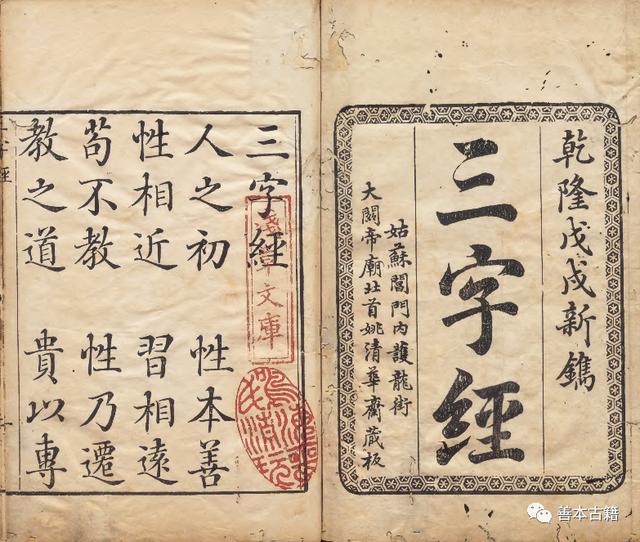 乾隆戊戌新鐫
三字經
姑蘇閶門內護龍街
大關帝廟北首姚清華齋藏板
三字經
人之初 性本善
性相近 習相遠
苟不教 性乃遷
教之道 貴以專
文庫
善本古籍